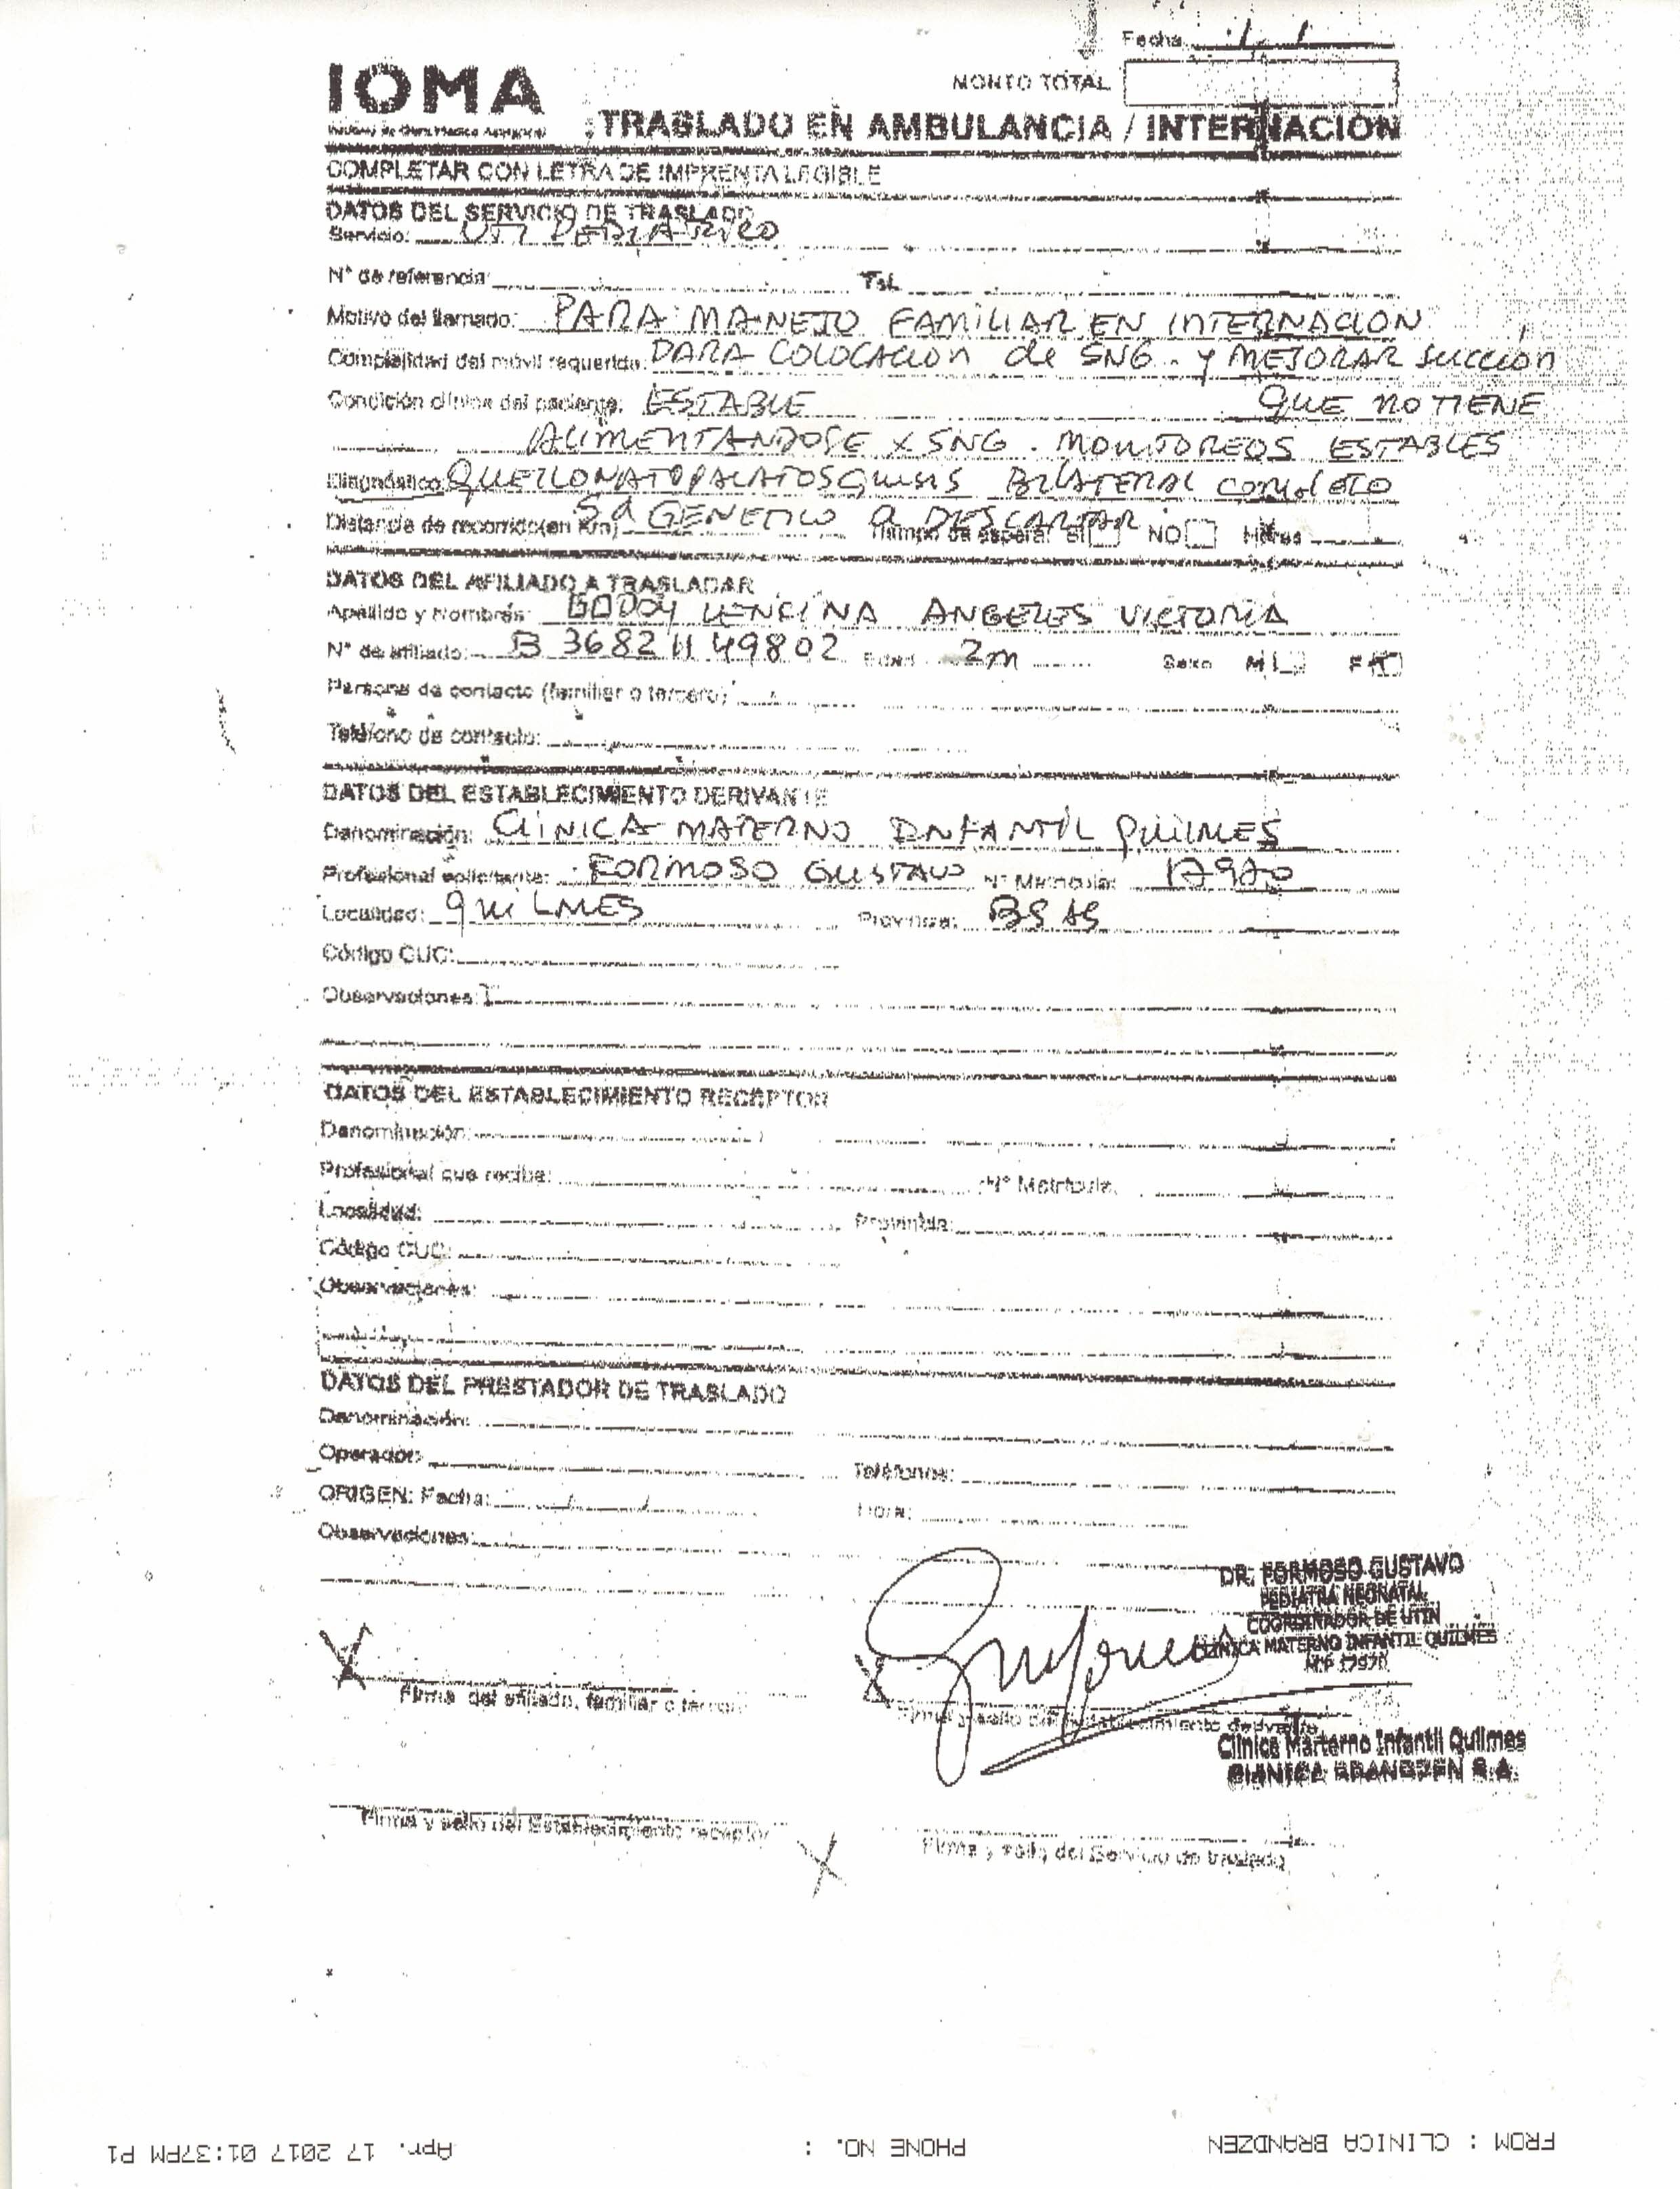 Fecha / /
IOMA
MONTO TOTAL
TRASLADO EN AMBULANCIA / INTERNACION
COMPLETAR CON LETRA DE IMPRENTA LEGIBLE
DATOS DEL SERVICIO DE TRASLADO
Servicio: UTI PEDIATRICO
N° de referencia: Tel.
Motivo del llamado: PARA MANEJO FAMILIAR EN INTERNACION
Complejidad del móvil requerido: PARA COLOCACION de SNG y MEJORAR SUCCIÓN
Condición clínica del paciente: ESTABLE QUE NO TIENE
ALIMENTANDOSE X SNG. MONITOREOS ESTABLES
Diagnóstico: BILATERAL COMPLETO
Sd GENETICO a DESCARTAR
Distancia de recorrido (en Km) Tiempo de espera: SI NO Horas
DATOS DEL AFILIADO A TRASLADAR
Apellido y Nombres: GODOY LENCINA ANGELES VICTORIA
N° de afiliado: B 3682 11 49802 Edad 2m Sexo M F
Persona de contacto (familiar o tercero)
Teléfono de contacto:
DATOS DEL ESTABLECIMIENTO DERIVANTE
Denominación: CLINICA MATERNO INFANTIL QUILMES
Profesional solicitante: FORMOSO GUSTAVO N° Matricula: 17970
Localidad: QUILMES Provincia: BS AS
Código CUC:
Observaciones:
DATOS DEL ESTABLECIMIENTO RECEPTOR
Denominación:
Profesional que recibe: N° Matricula:
Localidad: Provincia:
Código CUC:
Observaciones:
DATOS DEL PRESTADOR DE TRASLADO
Denominación:
Operador: Teléfonos:
ORIGEN: Fecha: / / Hora:
Observaciones:
DR. FORMOSO GUSTAVO
PEDIATRA NEONATAL
COORDINADOR DE UTIN
CLINICA MATERNO INFANTIL QUILMES
M.P 17970
X X
Firma del afiliado, familiar o tercero
Firma y sello del Establecimiento derivante
Clinica Marterno Infantil Quilmes
CLINICA BRANDZEN S.A.
Firma y sello del Establecimiento receptor
X
Firma y sello del Servicio de traslado
FROM : CLINICA BRANDZEN PHONE NO. : Apr. 17 2017 01:37PM P1